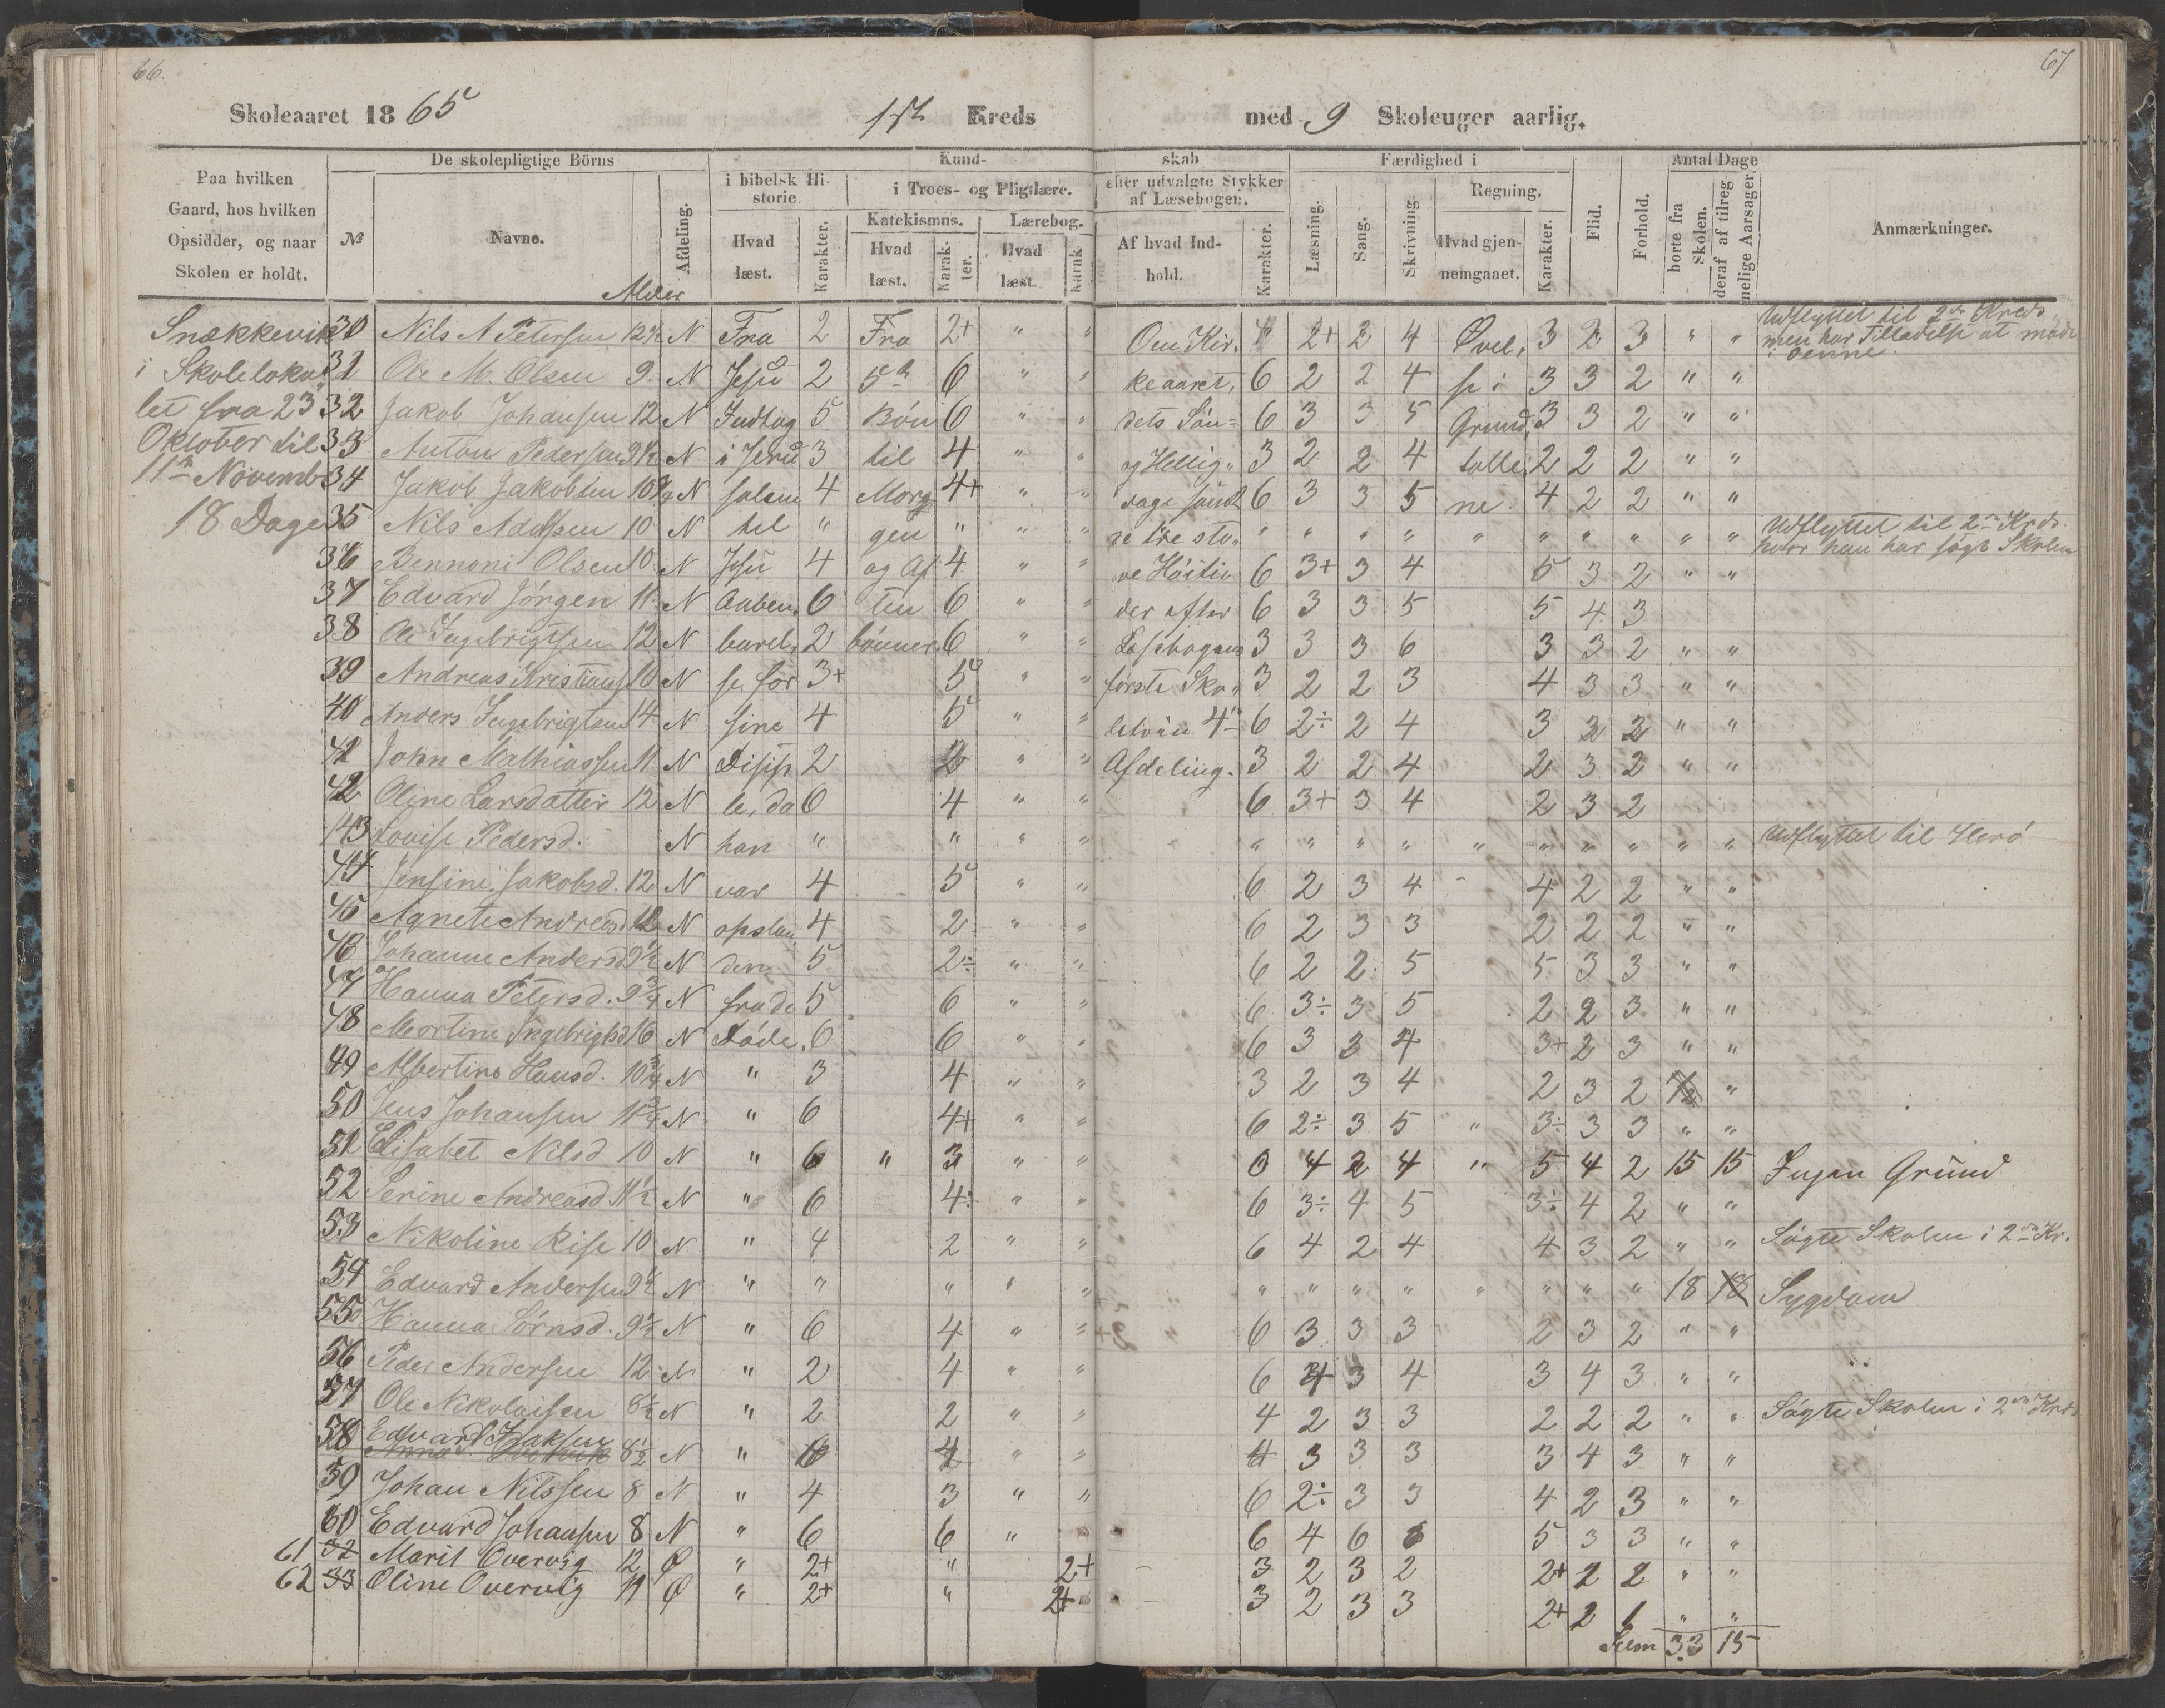 66.
67
Skoleaaret 1865
1ste Kreds
med 9 Skoleuger aarlig.
Paa hvilken Gaard, hos hvilken Opsidder, og naar Skolen er holdt.
№
De skolepligtige Börns
Navne.
Alder
Afdeling.
Kund-
skab
i bibelsk Hi-
storie
Hvad læst.
Karakter.
i Troes- og Pligtlære.
Katekismus.
Hvad læst.
Karak-
ter.
Lærebog.
Hvad læst.
Karak
efter udvalgte Stykker
af Læsebogen.
Af hvad Ind-
hold.
Karakter.
Færdighed i
Læsning.
Sang.
Skrivning.
Regning.
Hvad gjen-
nemgaaet.
Karakter.
Flid.
Forhold.
Antal Dage
borte fra Skolen.
deraf af tilreg-
nelige Aarsager.
Anmærkninger.
Snækkevik 30 Nils A Petersen 12½ N Fra 2 Fra 2+ " " Om Kir- 2+ 2 4 Øvel- 3 2 3 " " Udflyttet til 2de Kreds, men har Tilladelse at møde i denne.
i Skoleloka- 31 Ole M. Olsen 9 N Jesu 2 5te 6 " " keaaret, 6 2 2 4 se i 3 3 2 " "
let fra 23 32 Jakob Johansen 12 N Indtog 5 Bön 6 " " dets Sön- 6 3 3 5 Grund 3 3 2 " "
Oktober til 33 Anton Pedersen 9½ N i Jeru 3 til 4 " " og Hellig- 3 2 2 4 talle 2 2 2 " "
11te Novembr 34 Jakob Jakobsen 10¾ N salem 4 Morg 4+ " " dage samt 6 3 3 5 ne. 4 2 2 " "
18 Dage 35 Nils Adolfsen 10 N til " gen " " " de tre sto- " " " " " " " " " " Udflyttet til 2den Krds. hvor han har søgt Skolen
36 Bennoni Olsen 10 N Jesu 4 og Af 4 " " re Høiti- 6 3+ 3 4 5 3 2 " "
37 Edvard Jörgen 11 N Aaben- 6 ten 6 " " der efter 6 3 3 5 5 4 3
38 Ole Ingebrigtsen 12 N barel- 2 bönner. 6 " " Læsebogens 3 3 3 6 3 3 2 " "
39 Andreas Kristians 10 N se for 3+ 5 " " förste Sko- 3 2 2 3 4 3 3 " "
40 Anders Ingebrigtsen 14 N sine 4 5 " " letrin 4de 6 2÷ 2 4 3 3 2 " "
41 John Mathiassen 11 N Disip 2 2 " " Afdeling. 3 2 2 4 2 3 2 " "
42 Oline Larsdatter 12 N le, da 6 4 " " 6 3+ 3 4 2 3 2
43 Lovise Pedersd. N han " " " " " " " " " " " " " " Udflyttet til Herö
44 Jensine Jakobsd. 12 N var 4 5 " " 6 2 3 4 4 2 2 " "
45 Agnete Andreasd 12 N opstan 4 2 " " 6 2 3 3 2 2 2 " "
46 Johanne Andersd 9½ N den 5 2÷ " " 6 2 2 5 5 3 3 " "
47 Hanna Petersd. 9¾ N fra de 5 6 " " 6 3÷ 3 5 2 2 3 " "
48 Mortine Ingebrigtsd 16 N Døde. 6 6 " " 6 3 3 4 3+ 2 3 " "
49 Albertine Hansd. 10¾ N " 3 4 " " 3 2 3 4 2 3 2 "
50 Jens Johansen 11¾ N " 6 4+ " " 6 2÷ 3 5 " 3÷ 3 3 " "
51 Elisabet Nilsd 10 N " 6 " 3 " " 6 4 2 4 " 5 4 2 15 15 Ingen Grund
52 Serine Andreasd 11½ N " 6 4÷ " " 6 3÷ 4 5 3÷ 4 2 " "
53 Nikoline Rise 10 N " 4 2 " " 6 4 2 4 4 3 2 " " Søgte Skolen i 2den Kr.
54 Edvard Andersen 9½ N " " " " " " " " " " " " " 18 18 Sygdom
55 Hanna Sörnsd. 9½ N " 6 4 " " 6 3 3 3 2 3 2 " "
56 Peder Andersen 12 N " 2 4 " " 6 4 3 4 3 4 3 " "
57 Ole Nikolaisen 8½ N " 2 2 " " 4 2 3 3 2 2 2 " " Søgte Skolen i 2den Krds
58 Edvard Isaksen 8½ N " 6 4 " " 4 3 3 3 3 4 3 " "
59 Johan Nilssen 8 N " 4 3 " " 6 2÷ 3 3 4 2 3 " "
60 Edvard Johansen 8 N " 6 6 " 6 4 6 6 5 3 3 " "
61 32 Marit Overvig 12 Ø " 2+ " 2+ 3 2 3 2 2+ 2 2 " "
62 33 Oline Overvig 11 Ø " 2+ " 2+ 3 2 3 3 2+ 2 1 " "
Sum 33 15